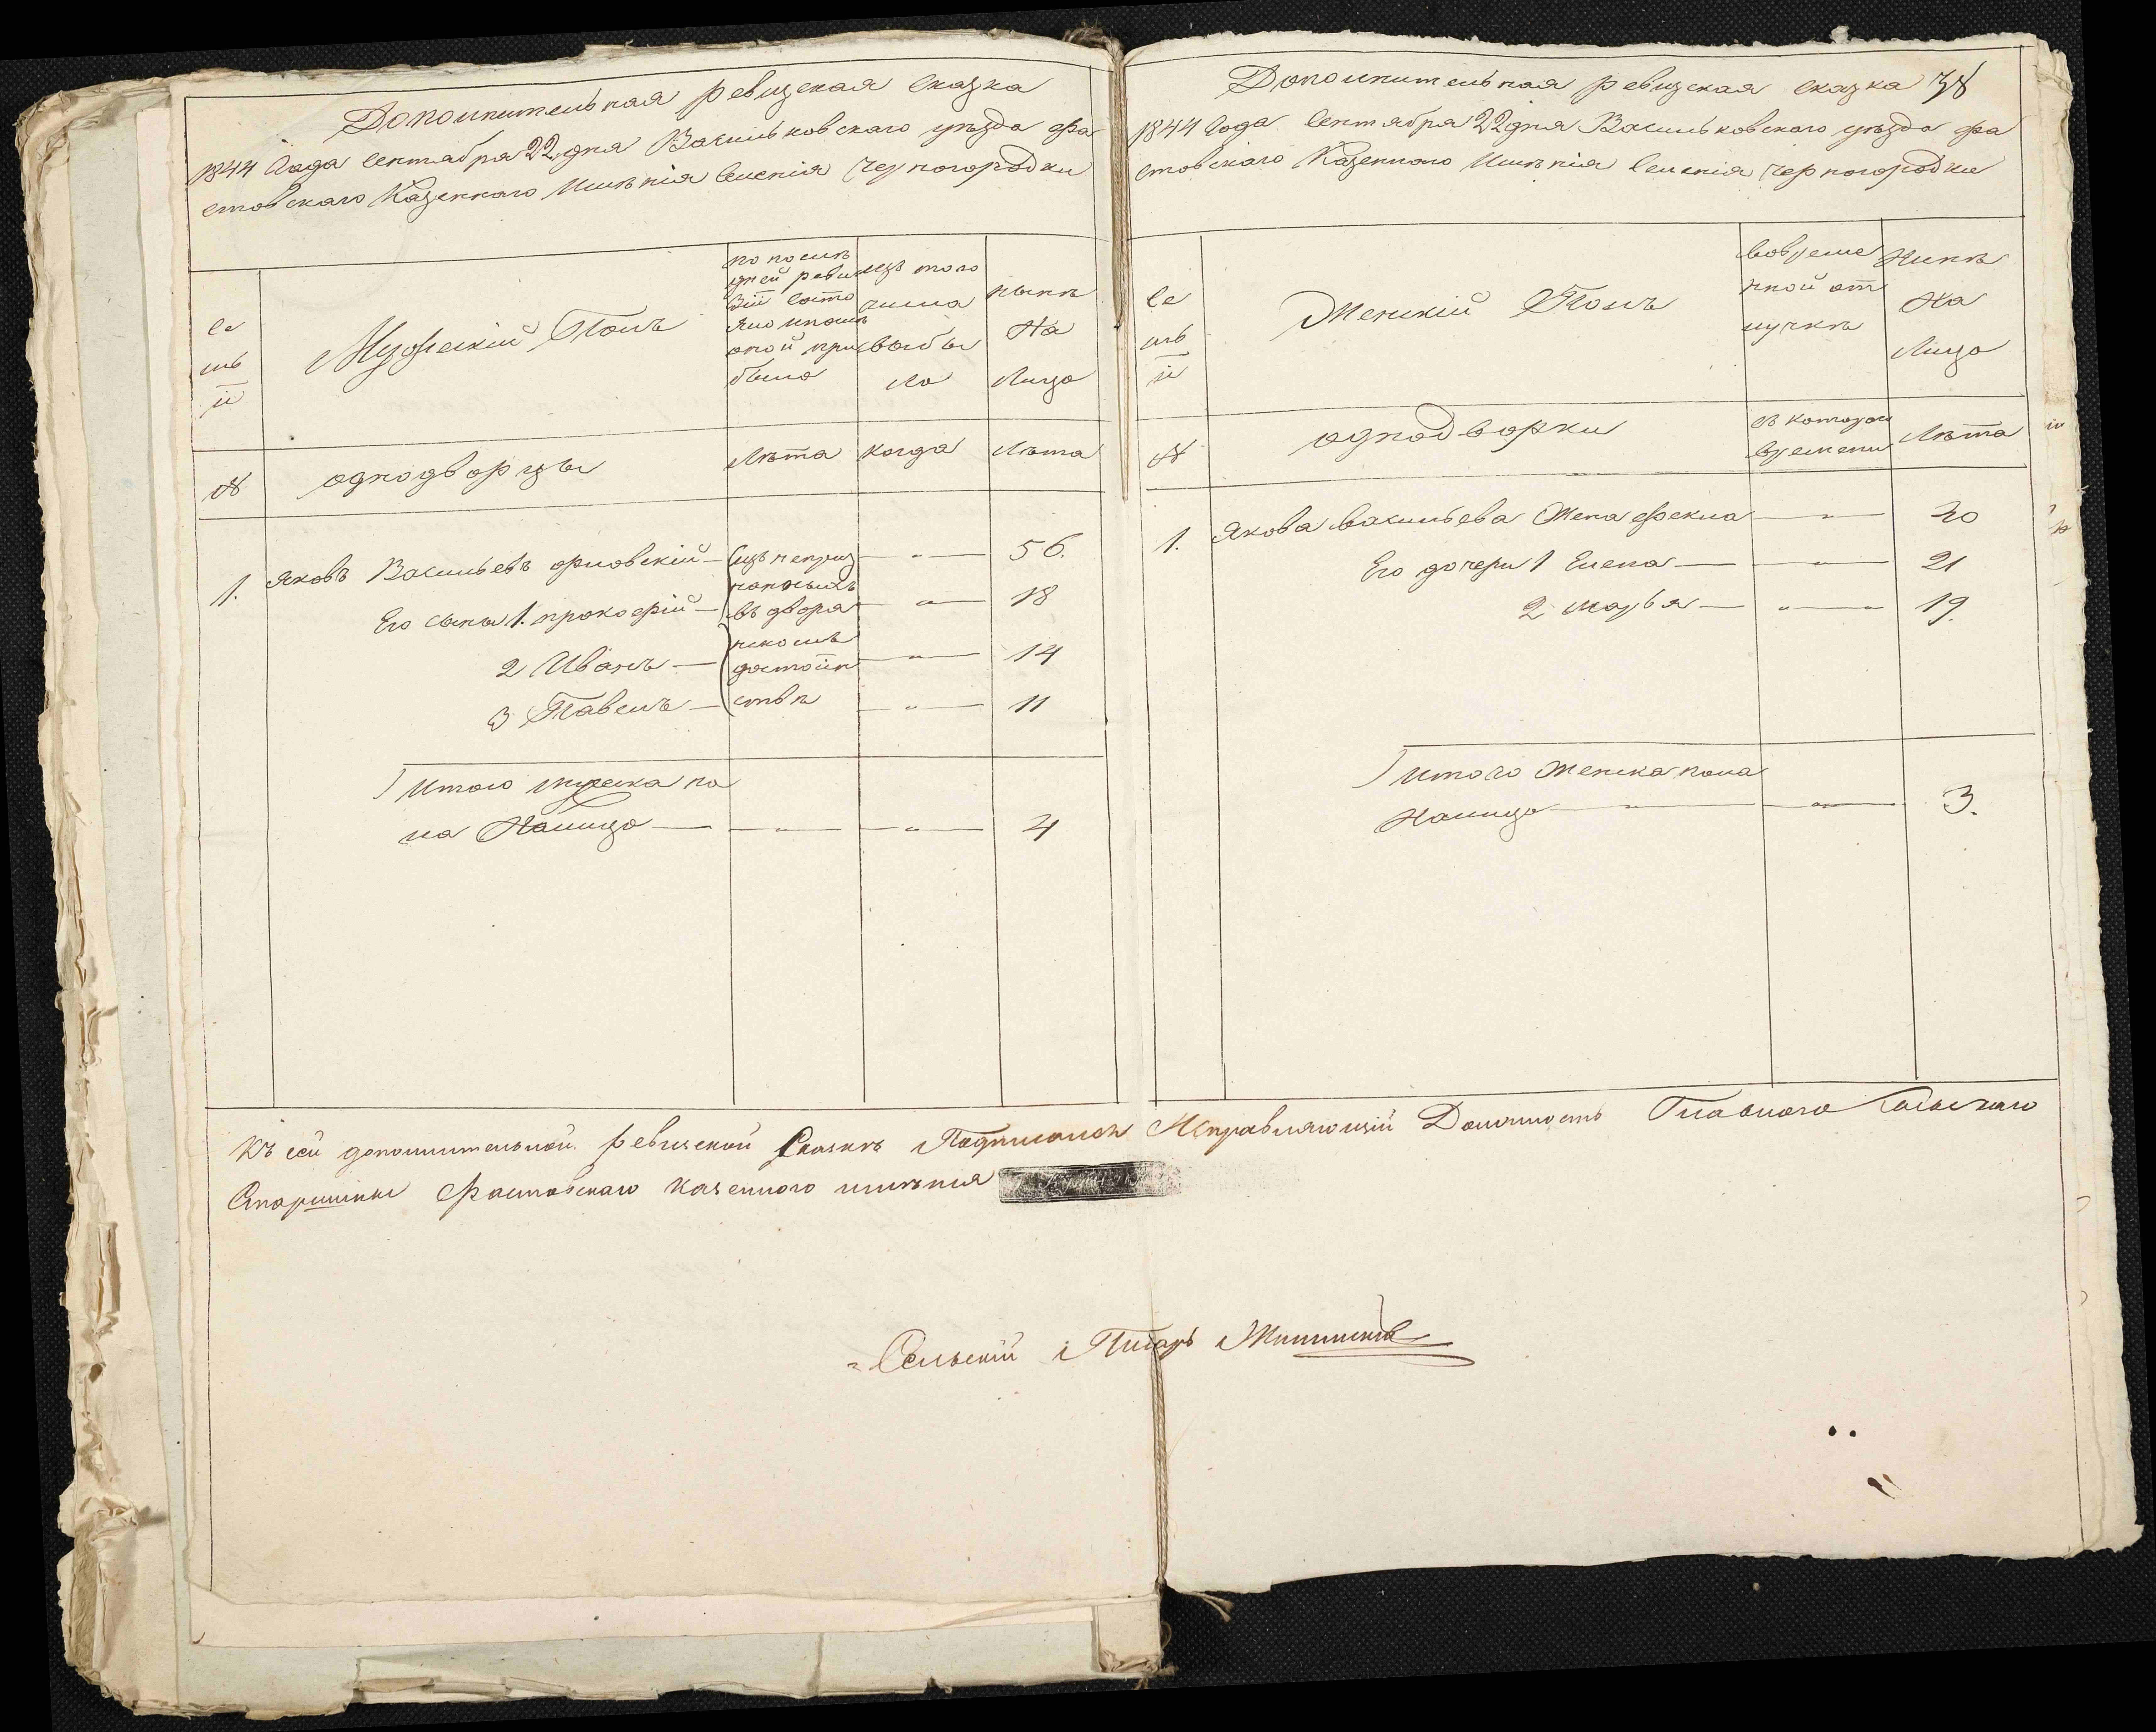 Дополнительная ревизская сказка
1844 Года Сентября 22 дня Васильковскаго уѣзда Фа
стовскаго Казеннаго Имѣнія Селенія Черногородки
се
мь
и
Мужескій Полъ
по послѣ
дней реви
зіи состо
яло и послѣ
оной при
было
изъ того
числа
выбы
ло
нынѣ
На
Лицо
№
однодворцы
Лѣта
когда
Лѣта
1. Яковъ Васильевъ орловскій — 56.
Его сыны 1. прокофій — 18
2 Иванъ — 14
3 Павелъ — 11
изъ неприз
нанныхъ
въ дворя
нскомъ
достоин
ствѣ
Итого мужеска по
ла Налицо — 4
Дополнительная ревизская сказка 38
1844 Года Сентября 22 дня Васильковскаго уѣзда Фа
стовскаго Казеннаго Имѣнія Селенія Черногородки
се
мь
и
Женскій Полъ
Вовреме
нной от
лучкѣ
Нинѣ
На
Лицо
№
однодворки
съ котораго
времени
Лѣта
1. Якова Васильева Жена Фекла — 40
Его дочери 1 Елена — 21
2 марья — 19.
Итого женска пола
Налицо — 3.
Къ сей дополнительной ревизской Сказкѣ Подписался Исправляющій Должность Главнаго Сельскаго
Старшины Фастовскаго казенного имѣнія
Сельскій Писарь